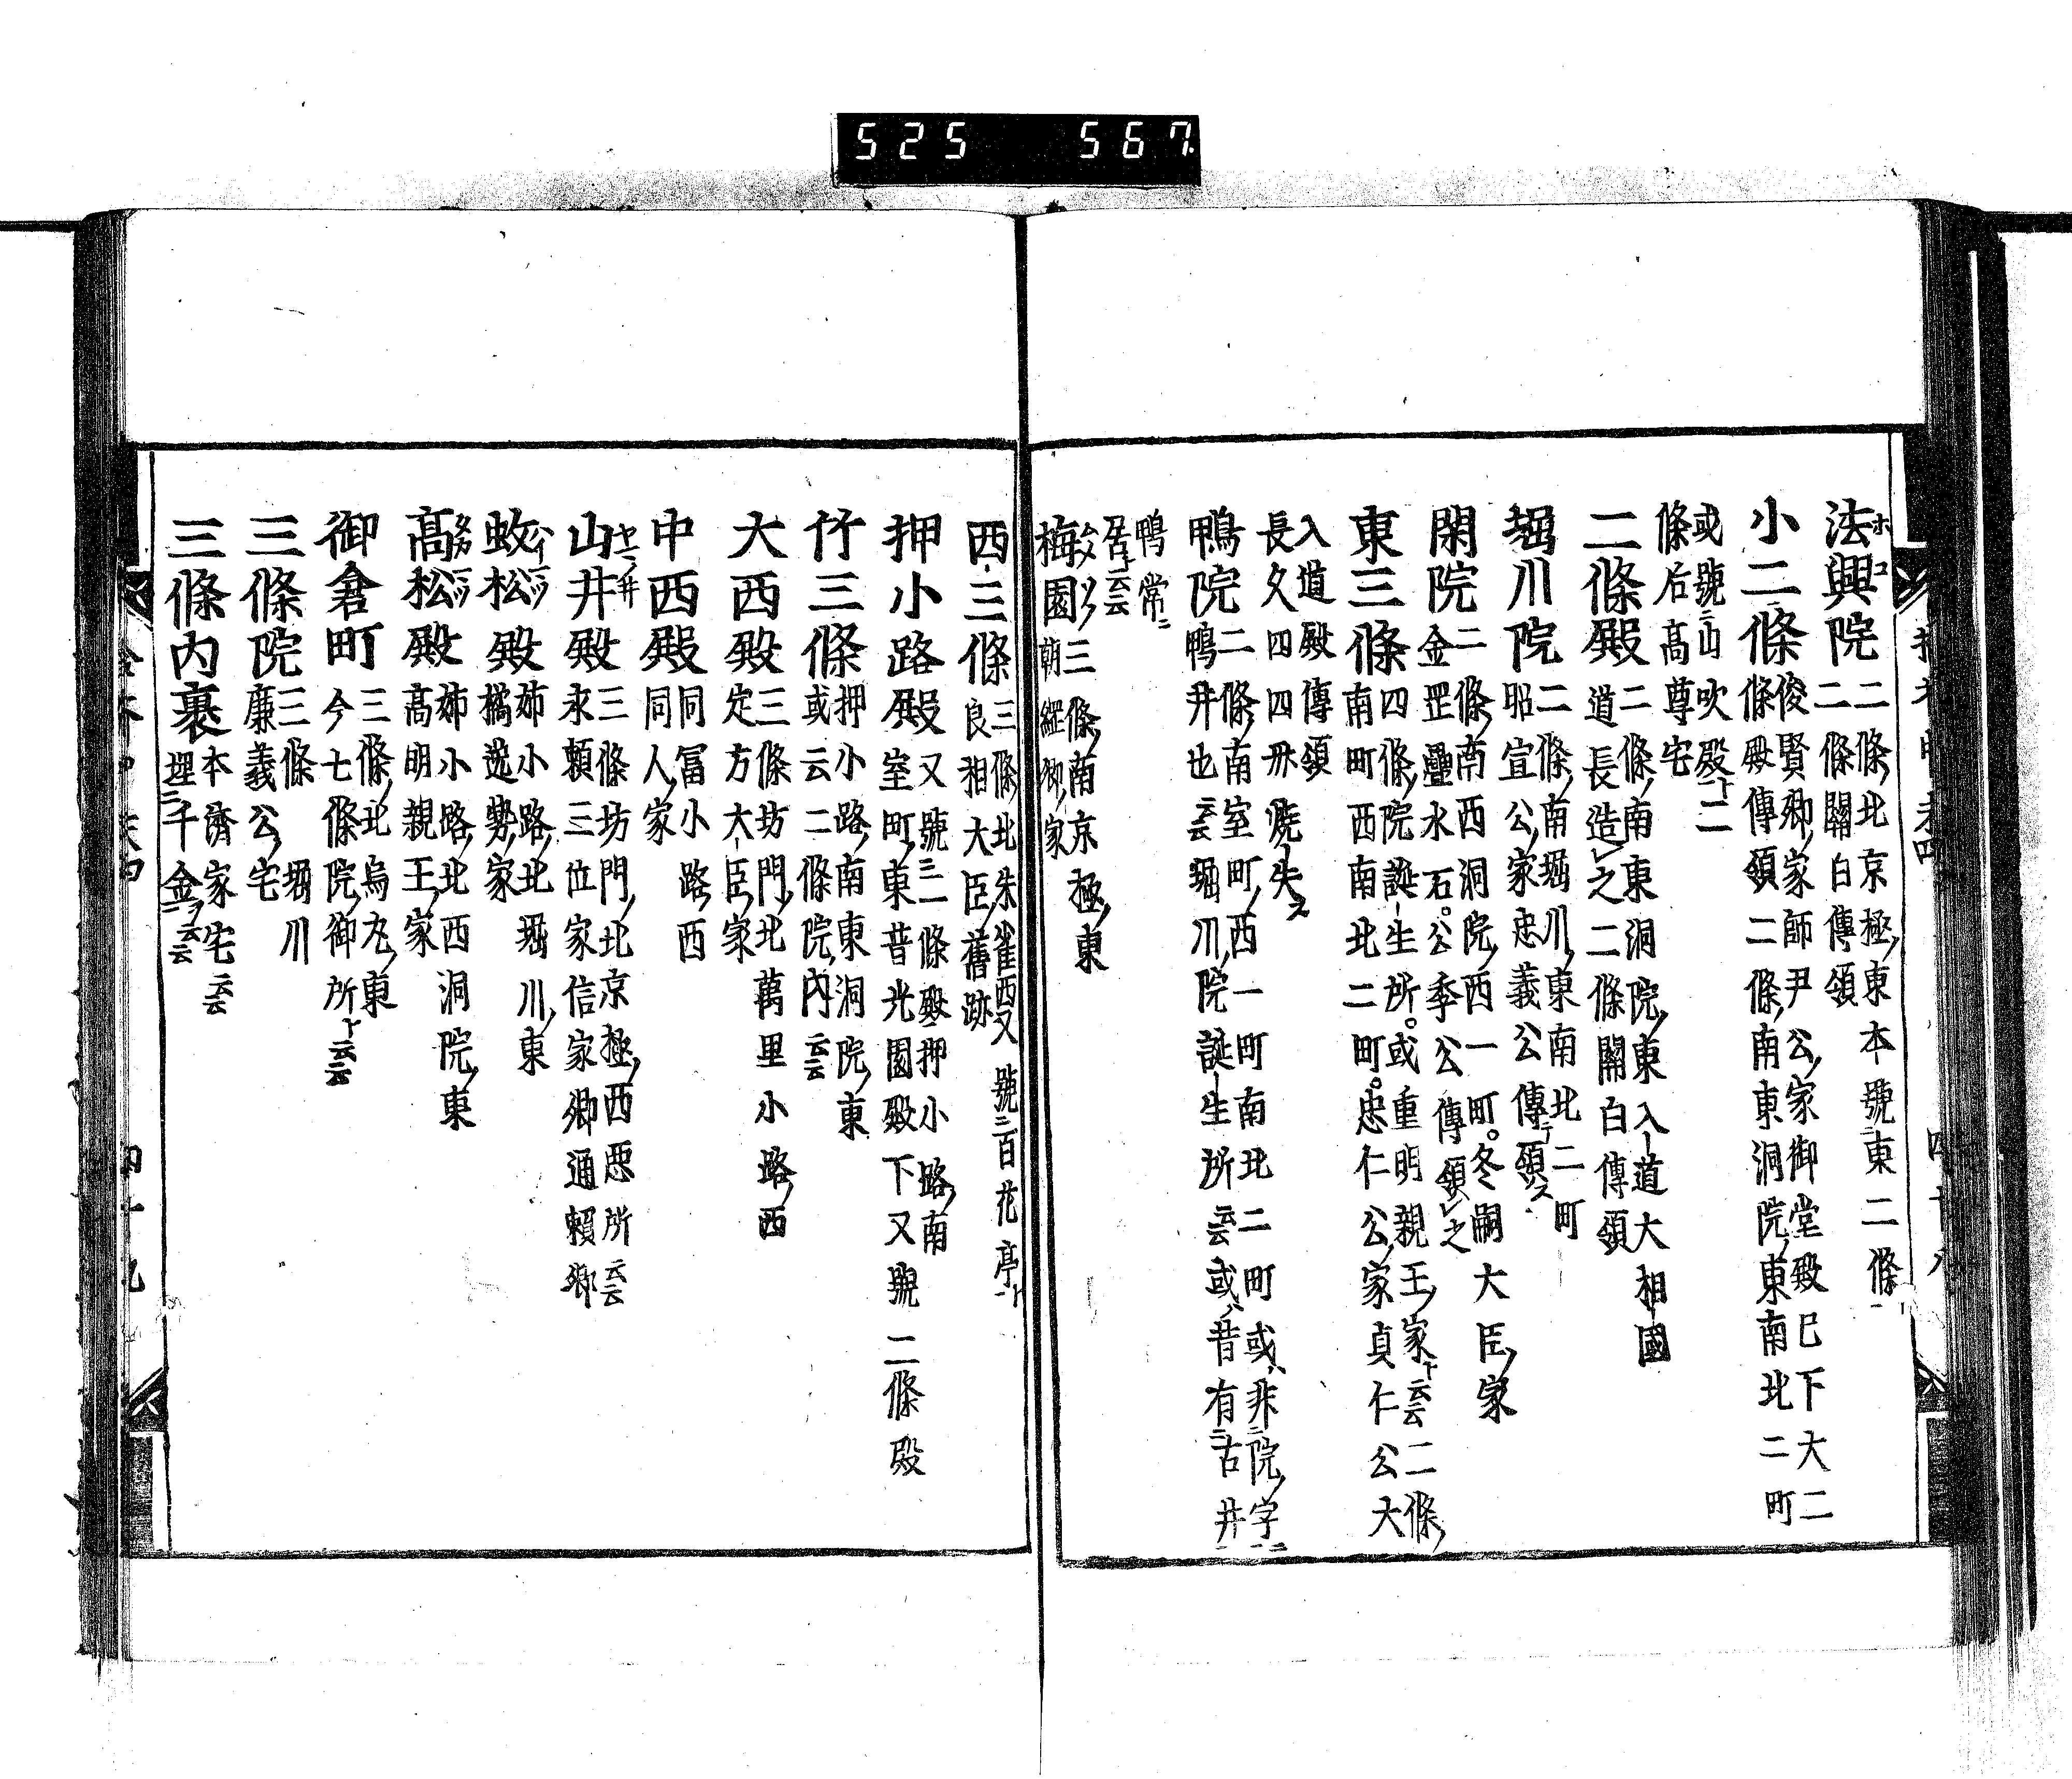 525 567
法興院 二條北京極東本號東二條
二條關白傳領
小二條 俊賢卿家師尹公家御堂殿已下大二
條殿傳領二條南東洞院東南北二町
或號山吹殿ト二
條后高尊宅
二條殿 二條南東洞院東入道大相國
道長造之二條關白傳領
堀川院 二條南堀川東南北二町
昭宣公家忠義公傳領ス
閑院 二條南西洞院西一町冬嗣大臣家
金罡疊水石公季公傳領之
東三條 四條院誕生所或重明親王家ト云云二條
南町西南北二町忠仁公家貞仁公大
入道殿傳領
長久四四卅燒失ス
鴨院 二條南室町西一町南北二町或非院字
鴨井也云云堀川院誕生所云云或昔有古井
鴨常ニ
居ト云云
梅園 三條南京極東
朝經卿家
西三條 三條北朱雀西又號百花亭ト
良相大臣舊跡
押小路殿 又號三二條殿押小路南
室町東昔光園殿下又號二條殿
竹三條 押小路南東洞院東
或云二條院內云云
大西殿 三條坊門北萬里小路西
定方大臣家
中西殿 同冨小路西
同人家
山井殿 三條坊門北京極西惡所云云
永賴三位家信家卿通賴卿
蚊松殿 姉小路北堀川東
橘逸勢家
高松殿 姉小路北西洞院東
高明親王家
御倉町 三條北烏丸東
今七條院御所ト云云
三條院 三條堀川
廉義公宅
三條內裏 本濟家宅云云
埋千金ヲ云云
四十九